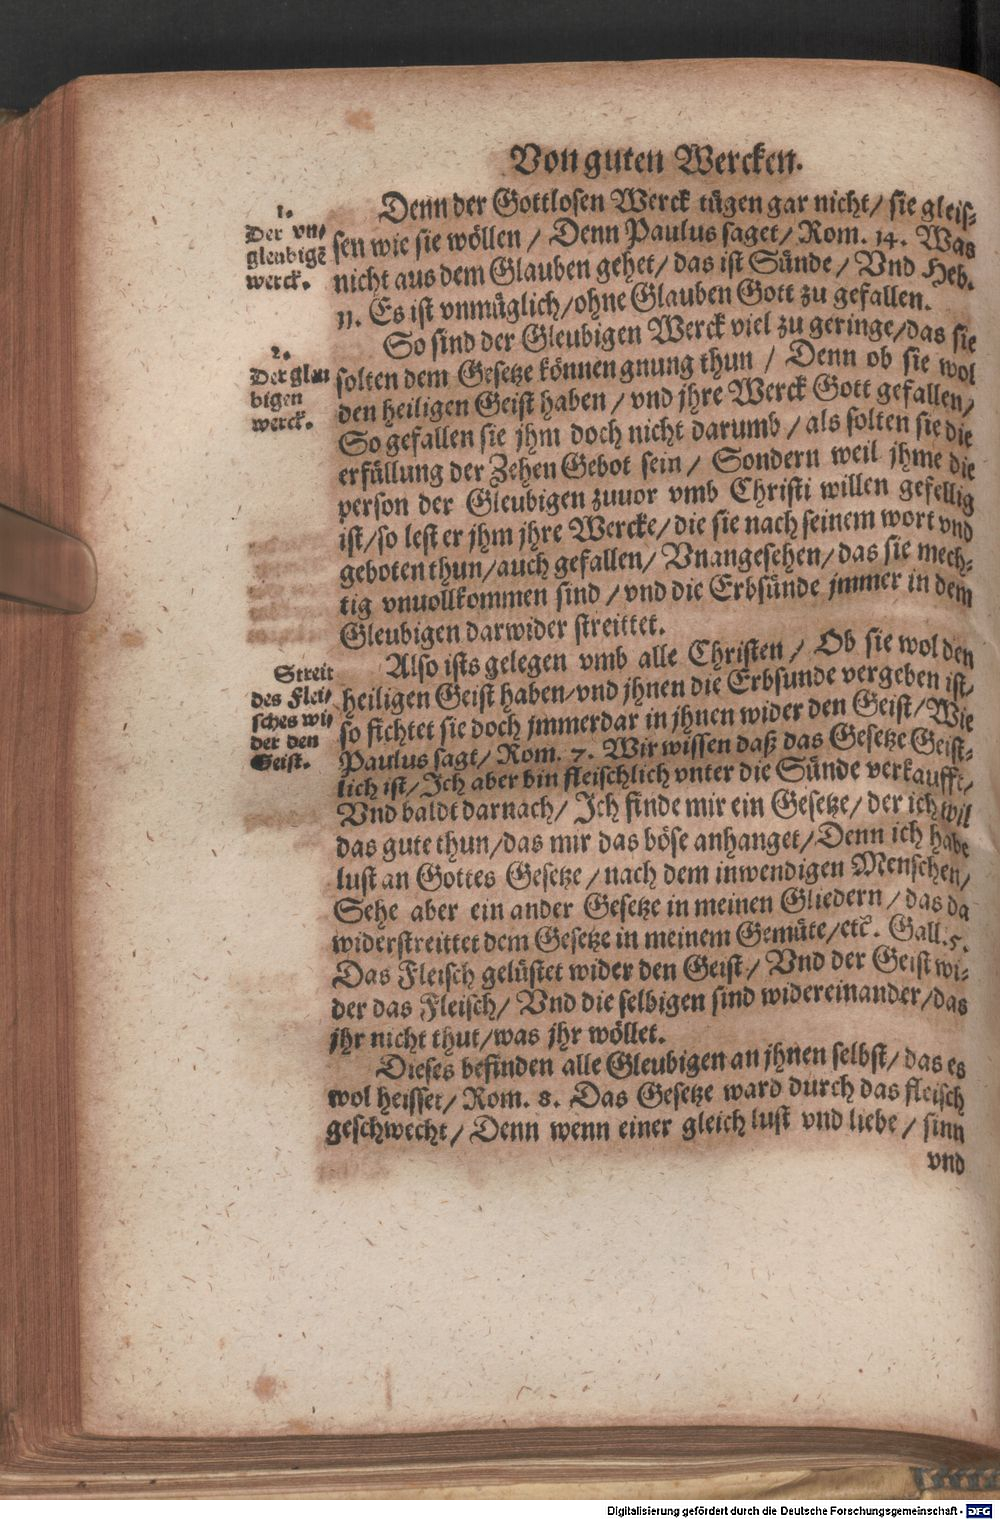 Von guten Wercken.
1.
Der vn⸗
gleubigē
werck.
Denn der Gottlosen Werck tügen gar nicht/ sie gleis⸗
sen wie sie wöllen / Denn Paulus saget/ Rom. 14. Was
nicht aus dem Glauben gehet/ das ist Sünde/ Vnd Heb.
11. Es ist vnmüglich/ohne Glauben Gott zu gefallen.
2.
Der glau
bigen
werck.
So sind der Gleubigen Werck viel zu geringe/das sie
solten dem Gesetze können gnung thun / Denn ob sie wol
den heiligen Geist haben / vnd jhre Werck Gott gefallen/
So gefallen sie jhm doch nicht darumb / als solten sie die
erfüllung der Zehen Gebot sein / Sondern weil jhme die
person der Gleubigen zuuor vmb Christi willen gefellig
ist/so lest er jhm jhre Wercke/ die sie nach seinem wort vnd
geboten thun/auch gefallen/ Vnangesehen/ das sie mech⸗
tig vnuollkommen sind / vnd die Erbsünde jmmer in dem
Gleubigen darwider streittet.
Streit
des Flei⸗
sches wi⸗
der den
Geist.
Also ists gelegen vmb alle Christen / Ob sie wol den
heiligen Geist haben/vnd jhnen die Erbsunde vergeben ist/
so fichtet sie doch jmmerdar in jhnen wider den Geist/ Wie
Paulus sagt/ Rom. 7. Wir wissen daß das Gesetze Geist⸗
lich ist/ Ich aber bin fleischlich vnter die Sünde verkaufft/
Vnd baldt darnach/ Ich finde mir ein Gesetze/ der ich wil
das gute thun/das mir das böse anhanget/ Denn ich habe
lust an Gottes Gesetze / nach dem inwendigen Menschen/
Sehe aber ein ander Gesetze in meinen Gliedern / das da
widerstreittet dem Gesetze in meinem Gemüte/etc̄. Gall.5.
Das Fleisch gelüstet wider den Geist/ Vnd der Geist wi⸗
der das Fleisch/ Vnd die selbigen sind widereinander/das
jhr nicht thut/was jhr wöllet.
Dieses befinden alle Gleubigen an jhnen selbst/ das es
wol heisset/ Rom. 8. Das Gesetze ward durch das fleisch
geschwecht/ Denn wenn einer gleich lust vnd liebe / sinn
vnd
Digitalisierung gefördert durch die Deutsche Forschungsgemeinschaft - DFG